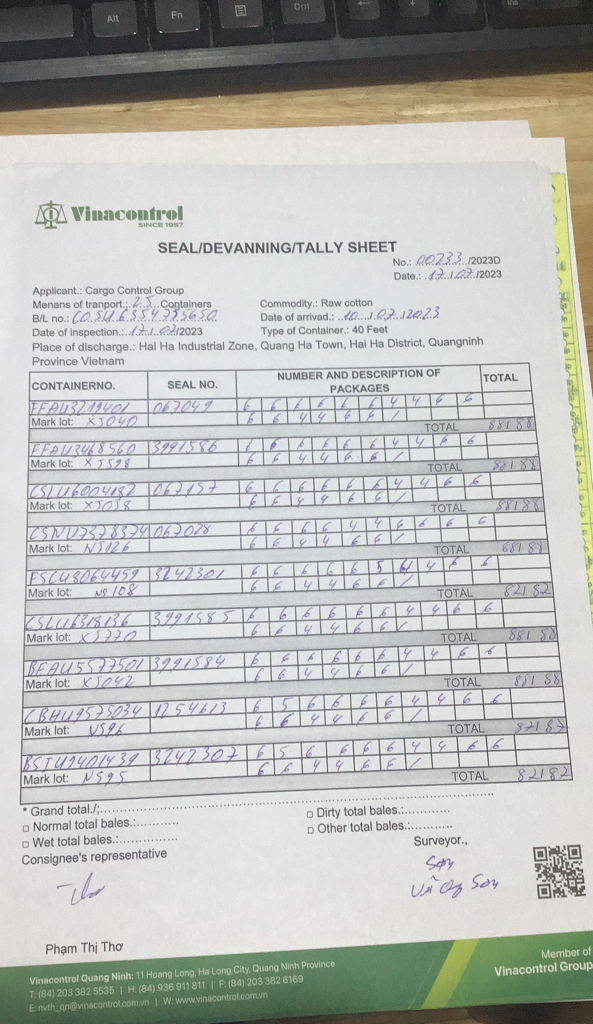 Alt
Fn
Ctrl
Vinacontrol
SINCE 1957
SEAL/DEVANNING/TALLY SHEET
No.: 00233 /2023D
Date.: 17 / 07 /2023
Applicant.: Cargo Control Group
Menans of tranport.: 25 Containers
Commodity.: Raw cotton
B/L no.: COSU6354755650
Date of arrived.: 10 / 07 / 2023
Date of inspection.: 17 / 07/2023
Type of Container.: 40 Feet
Place of discharge.: Hai Ha Industrial Zone, Quang Ha Town, Hai Ha District, Quangninh
Province Vietnam
CONTAINERNO. SEAL NO. NUMBER AND DESCRIPTION OF PACKAGES TOTAL
067049 6 6 6 6 6 6 4 4 6 6
Mark lot: XJ040 6 6 4 4 6 6 /
TOTAL 88188
FFAU3468560 3991586 6 6 6 6 6 6 4 4 6 6
Mark lot: 6 6 4 4 6 6 /
TOTAL 88188
CSLU6004182 067157 6 6 6 6 6 6 4 4 6 6
Mark lot: XJ038 6 6 4 4 6 6 /
TOTAL 88188
CSNU7378374 067028 6 6 6 6 4 4 6 6 6 6
Mark lot: NJ126 6 6 4 4 6 6 /
TOTAL 88188
FSCU8064459 3242301 6 6 6 6 6 5 4 4 6 6
Mark lot: NS108 6 6 4 4 6 6 /
TOTAL 82182
CSLU6318136 3991585 6 6 6 6 6 6 4 4 6 6
Mark lot: XJ770 6 6 4 4 6 6 /
TOTAL 88188
BEAU5577501 3991584 6 6 6 6 6 6 4 4 6 6
Mark lot: XJ042 6 6 4 4 6 6 /
TOTAL 88188
CBHU9575034 1254613 6 5 6 6 6 6 4 4 6 6
Mark lot: NS96 6 6 4 4 6 6 /
TOTAL 87187
3242307 6 5 6 6 6 6 4 4 6 6
Mark lot: NS95 6 6 4 4 6 6 /
TOTAL 82182
* Grand total./;
□ Normal total bales.:
□ Dirty total bales.:
□ Wet total bales.:
□ Other total bales.:
Consignee's representative
Surveyor.,
Phạm Thị Thơ
Vinacontrol Quang Ninh: 11 Hoang Long, Ha Long City, Quang Ninh Province
T: (84) 203 382 5535 | H: (84) 936 911 811 | F: (84) 203 382 6169
E: nvth_qn@vinacontrol.com.vn | W: www.vinacontrol.com.vn
Member of
Vinacontrol Group